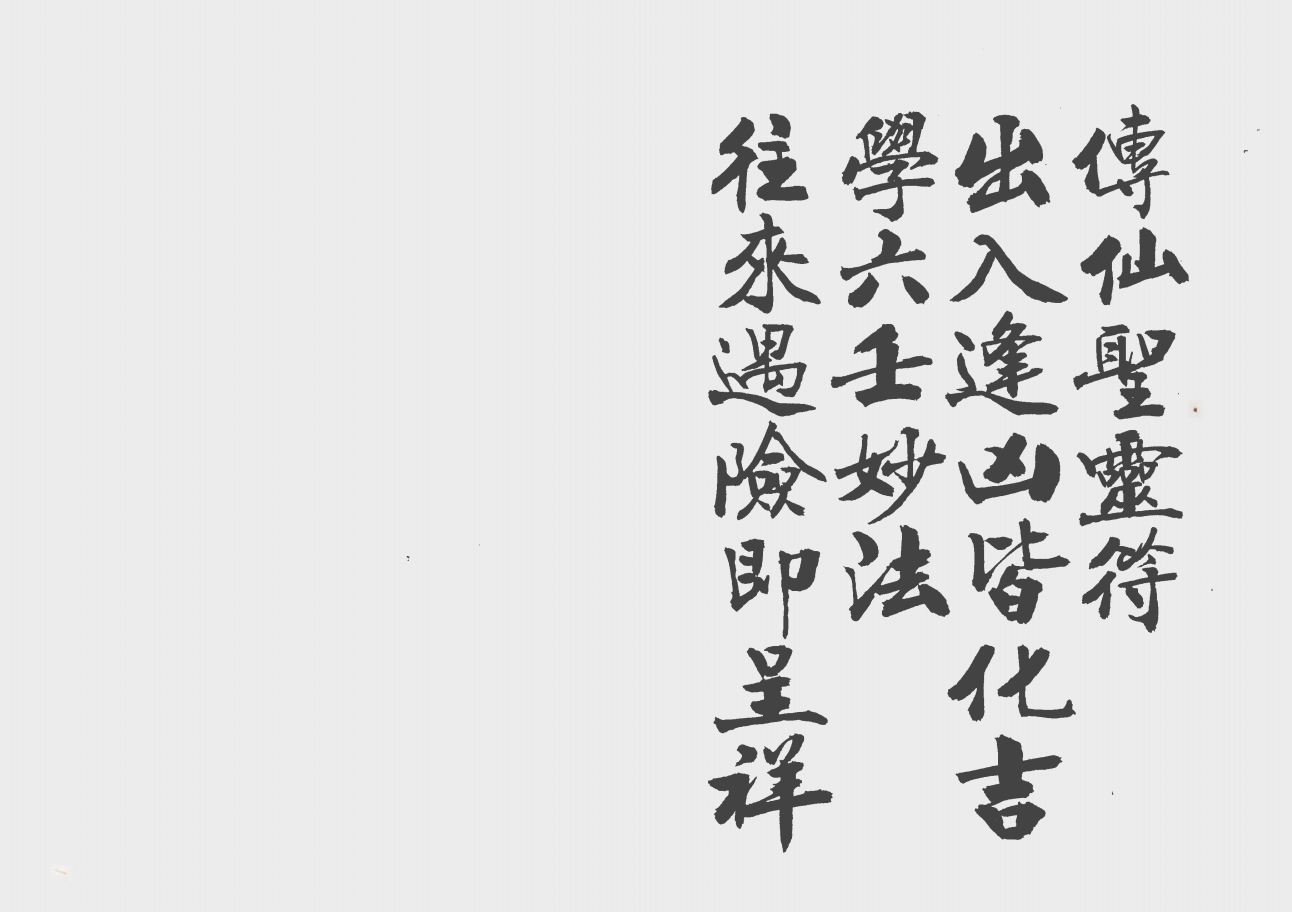 傳仙聖靈符
出入逢凶皆化吉
學六壬妙法
往來遇險即呈祥